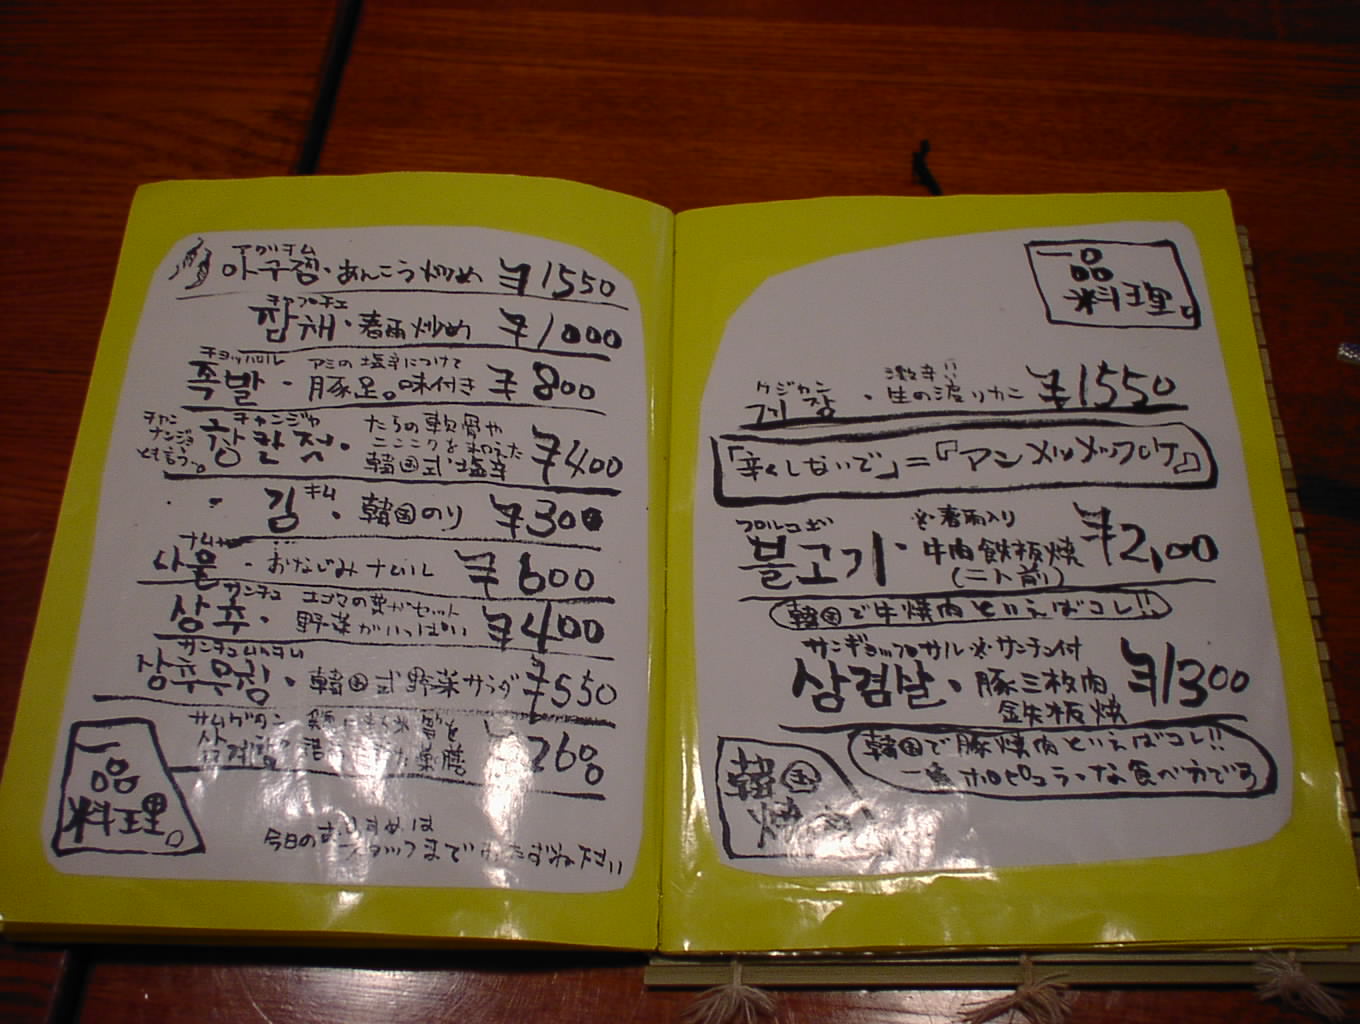 アグチム
아구찜・あんこう炒め ¥1550
チャプチェ
잡채・春雨炒め ¥1000
チョッパル アミの塩辛につけて
족발・豚足。味付き ¥800
チャンナンジョとも言う。
チャンジャ
창란젓・
たらの軟骨や
ニンニクを和えた
韓国式塩辛 ¥400
キム
김・韓国のり ¥300
ナムル
나물・おなじみナムル ¥600
サンチュ エゴマの葉がセット
상추・野菜がいっぱい ¥400
サンチュムッチム
상추무침・韓国式野菜サラダ ¥550
サムゲタン
一品
料理。
今日のおすすめは
スタッフまでおたずね下さい
一品
料理。
ケジャン 激辛!!
게장・生の渡りカニ ¥1550
「辛くしないで」=『アンメッメッ
プルコギ ※春雨入り
불고기・牛肉鉄板焼 ¥2,100
(二人前)
韓国で牛焼肉といえばコレ!!
サンギョップサル ※サンチュ付
삼겹살・豚三枚肉 ¥1300
鉄板焼
韓国で豚焼肉といえばコレ!!
一番ポピュラーな食べ方です
韓国
焼